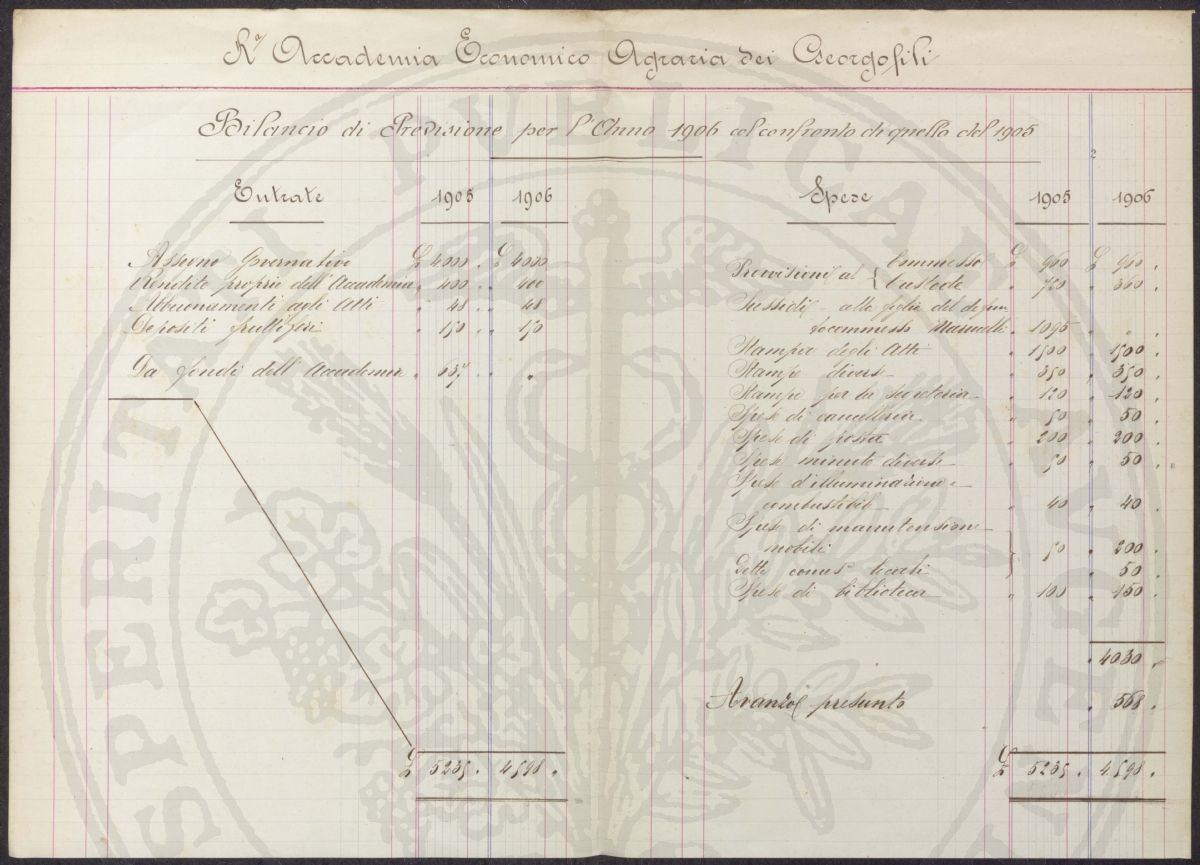 Rª Accademia Economico Agraria dei Georgofili
Bilancio di Previsione per l'Anno 1906 col confronto di quello del 1905
2
Entrate 1905 1906
Assegno Governativo £ 4000 . £ 4000
Rendite proprie dell'Accademia " 400 " 400
Abbuonamenti agli Atti " 48 " 48
Depositi fruttiferi " 150 " 150
Da fondi dell'Accademia " 637 " "
£ 5235 . 4598 .
Spese 1905 1906
Provvisioni al { Commesso £ 960 £ 960 .
Custode " 720 " 360 .
Sussidij alle figlie del defun
to commesso 1095 " " .
Stampa degli Atti " 1500 " 1500 .
Stampe diverse " 350 " 350 .
Stampe per la segreteria " 120 " 120 .
Spese di cancelleria " 50 " 50 .
Spese di posta " 200 " 200 .
Spese minute diverse " 50 " 50 .
Spese d'illuminazione e
combustibile " 40 " 40 .
Spese di manutenzione
mobili } " 50 " 200 .
Dette locali " 50 .
Spese di biblioteca " 100 " 150 .
" 4030 .
Avanzo presunto " 568 .
£ 5235 . 4598 .
SPERITATI PVBLICAE AVGEN